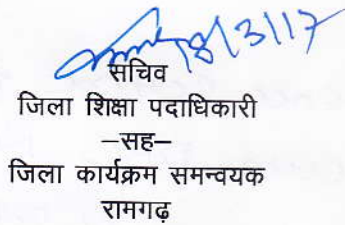 18/3/17
सचिव
जिला शिक्षा पदाधिकारी
–सह–
जिला कार्यक्रम समन्वयक
रामगढ़